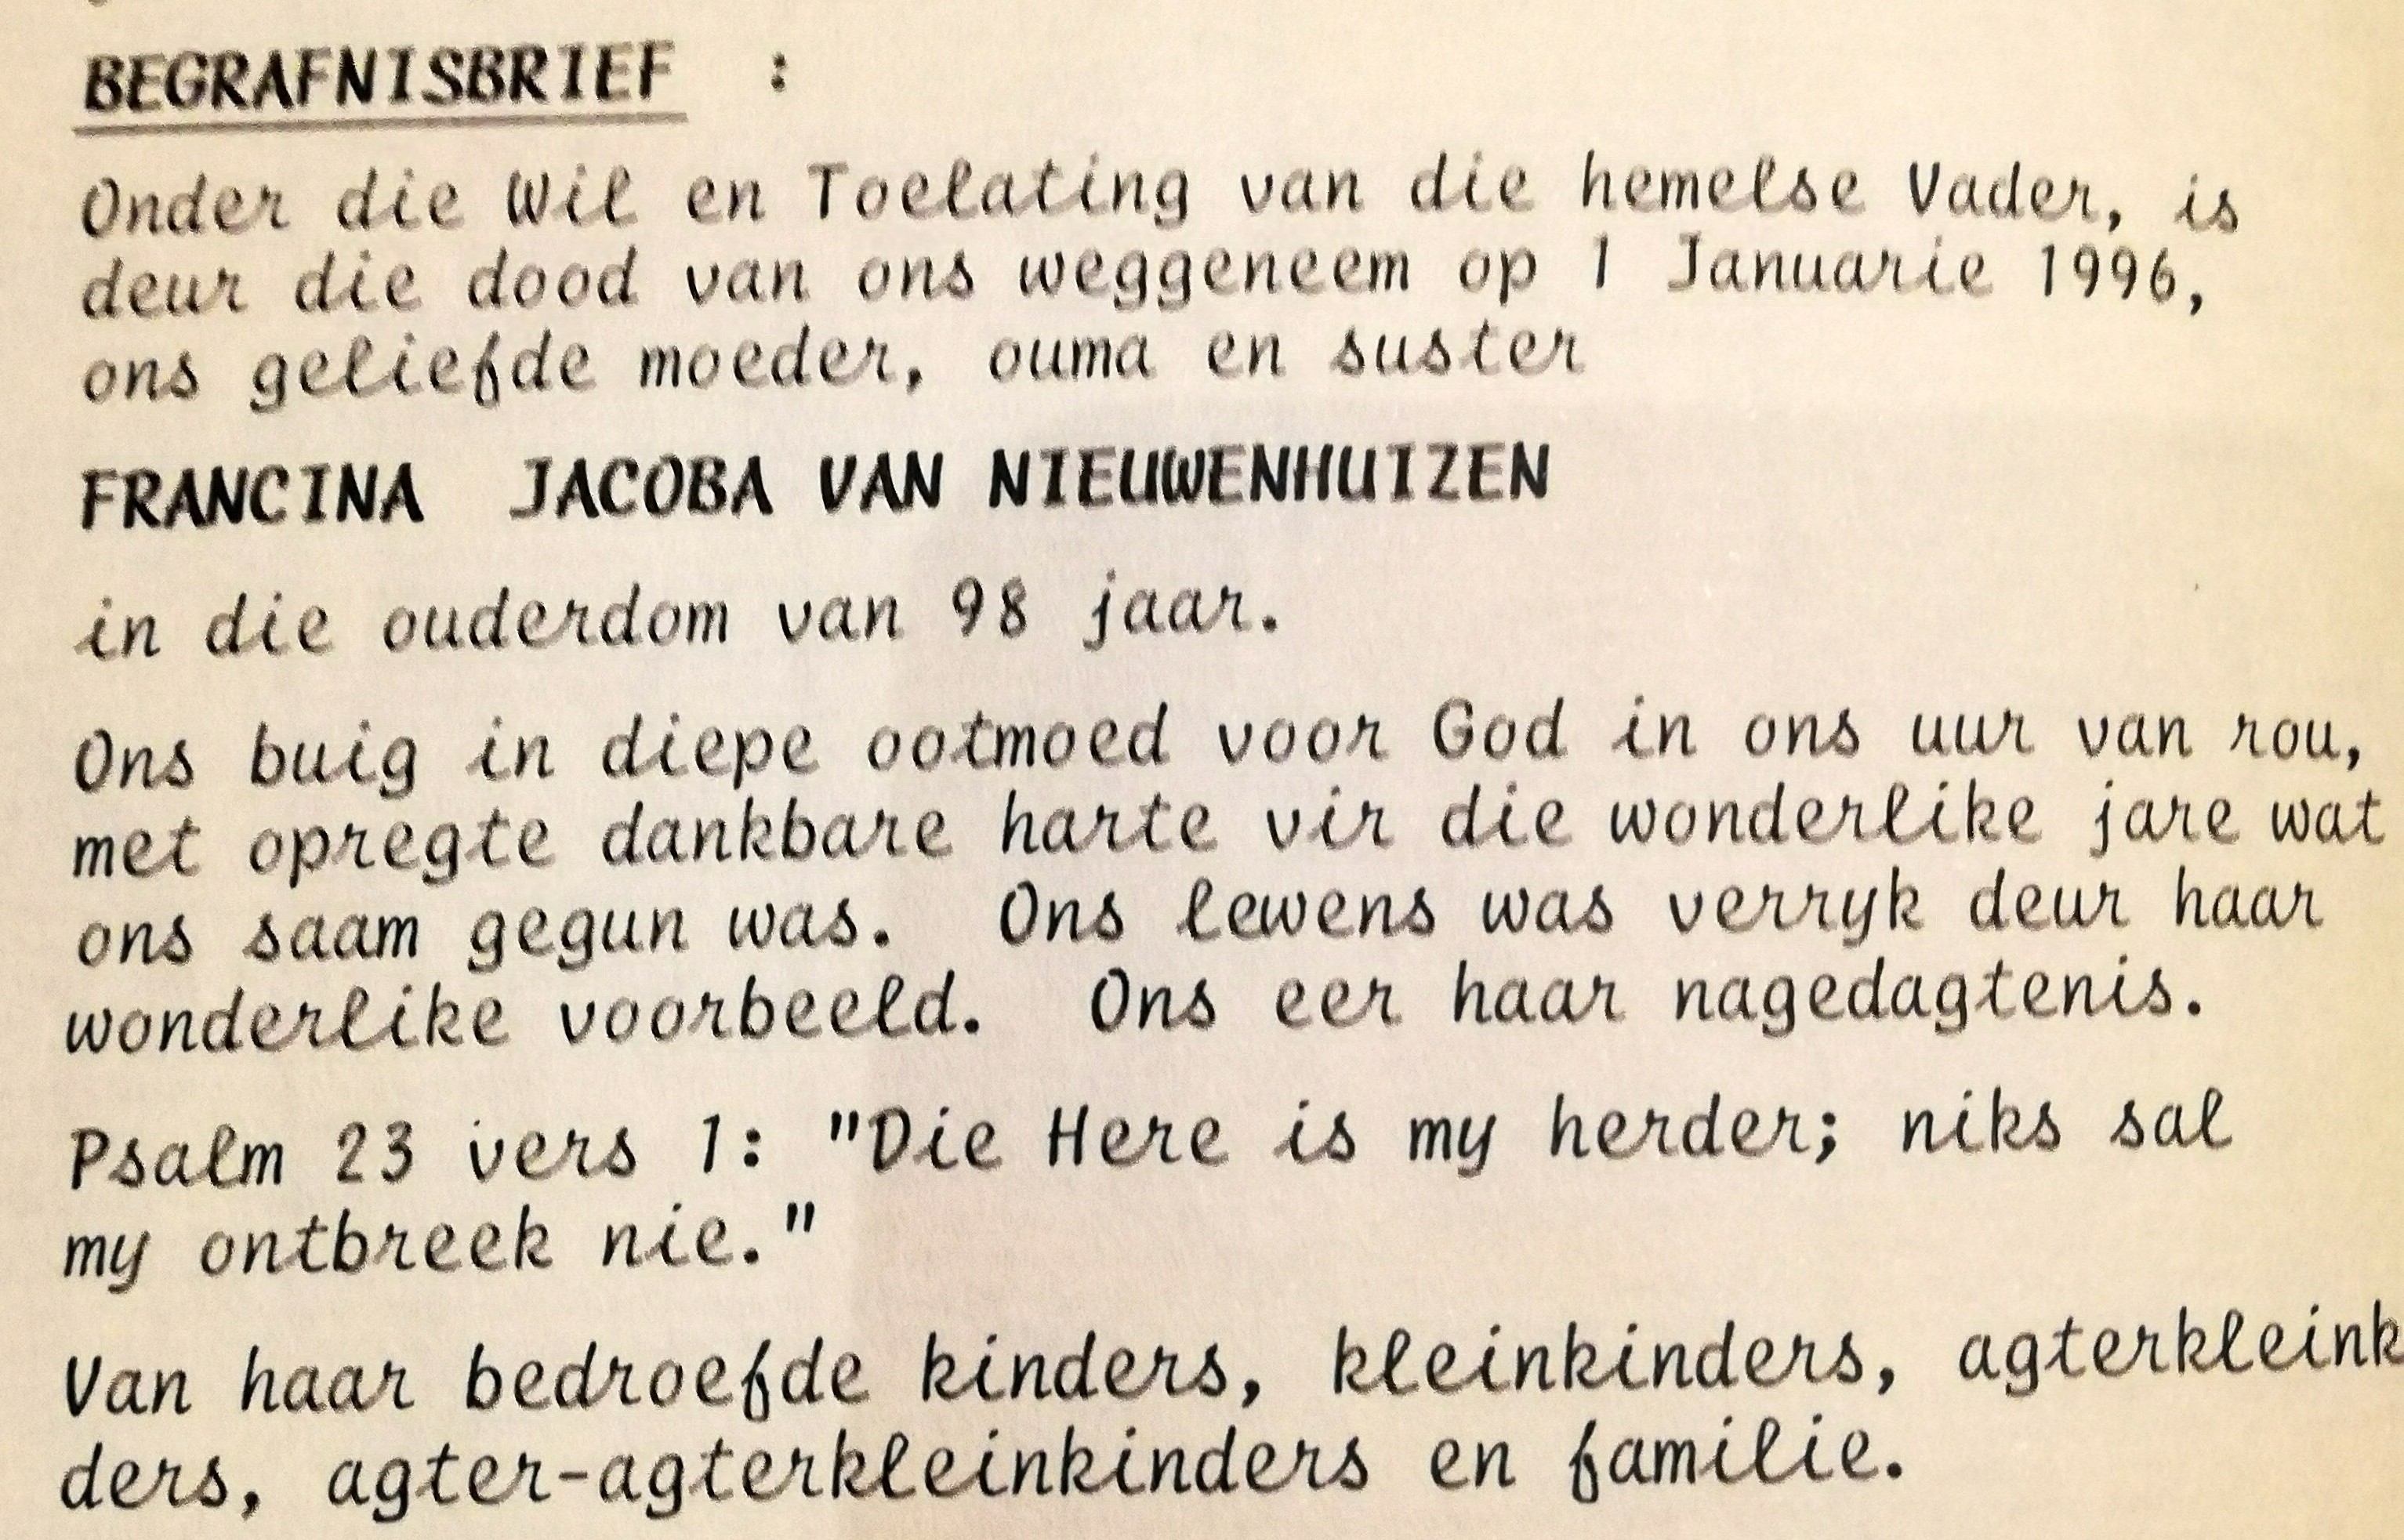 BEGRAFNISBRIEF :
Onder die Wil en Toelating van die hemelse Vader, is
deur die dood van ons weggeneem op 1 Januarie 1996,
ons geliefde moeder, ouma en suster
FRANCINA JACOBA VAN NIEUWENHUIZEN
in die ouderdom van 98 jaar.
Ons buig in diepe ootmoed voor God in ons uur van rou,
met opregte dankbare harte vir die wonderlike jare wat
ons saam gegun was. Ons lewens was verryk deur haar
wonderlike voorbeeld. Ons eer haar nagedagtenis.
Psalm 23 vers 1: "Die Here is my herder; niks sal
my ontbreek nie."
Van haar bedroefde kinders, kleinkinders, agterkleink
ders, agter-agterkleinkinders en familie.